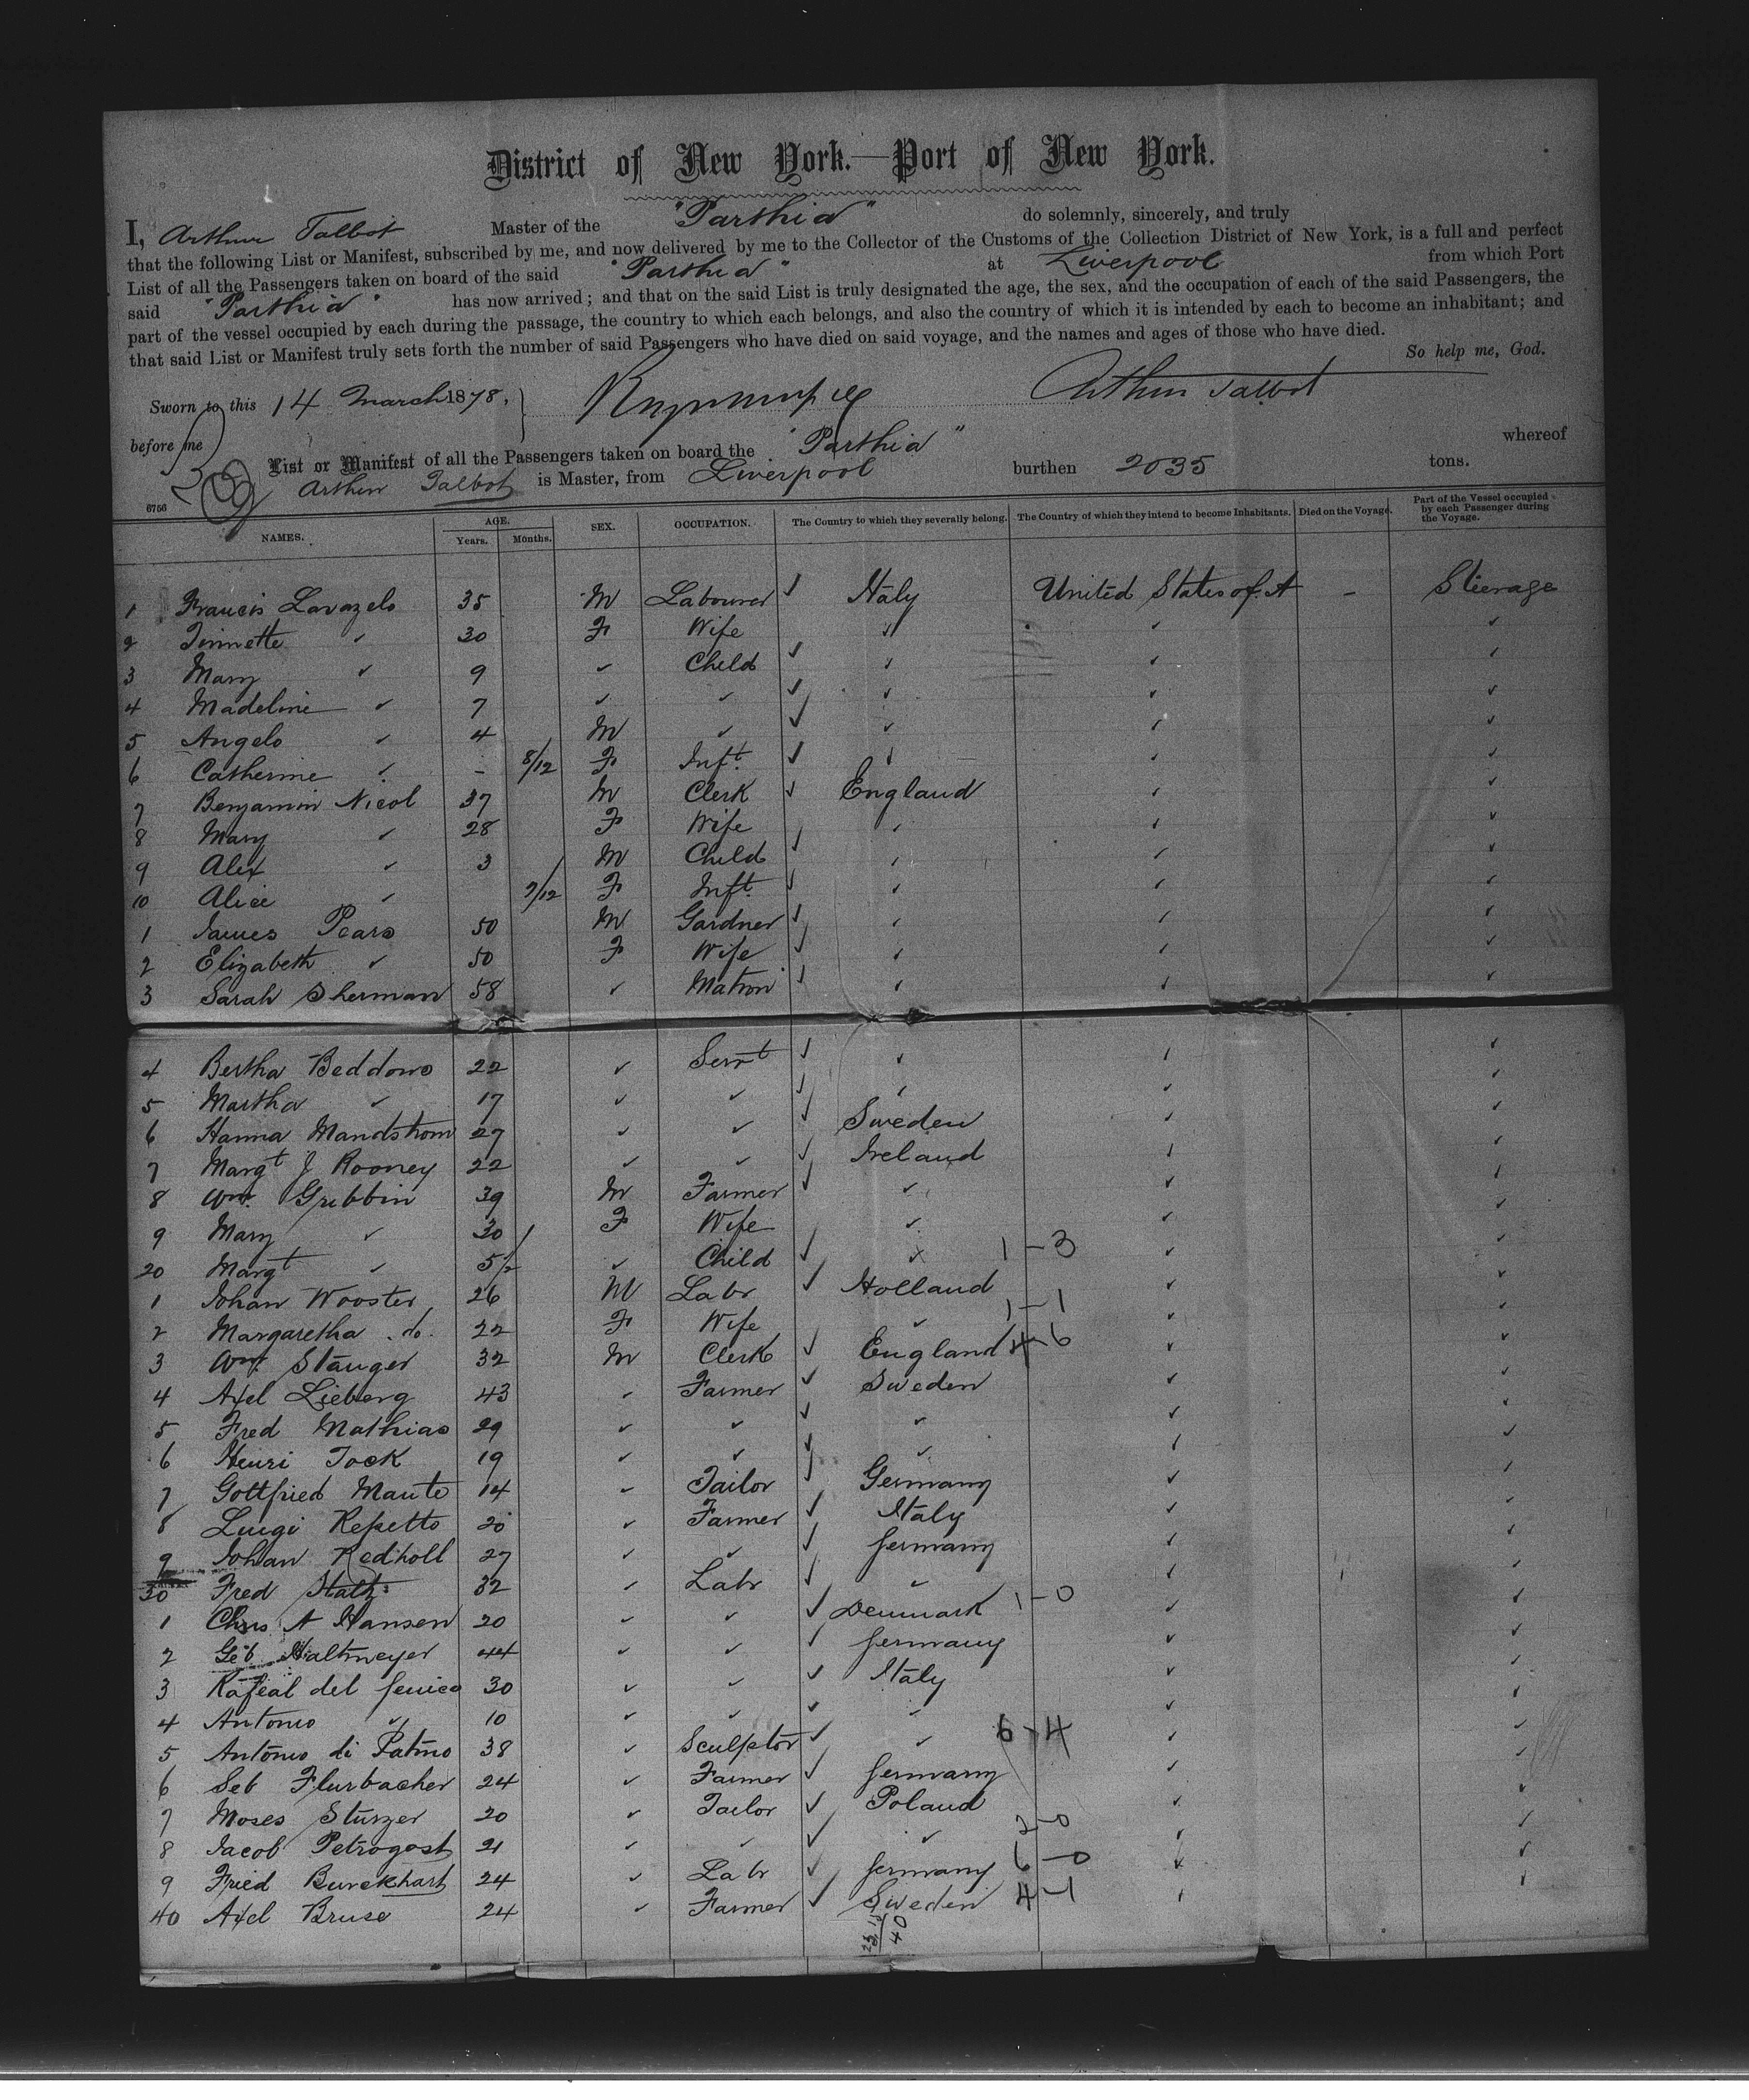 District of New York.—Port of New York.
I, Arthur Talbot Master of the "Parthia" do solemnly, sincerely, and truly
that the following List or Manifest, subscribed by me, and now delivered by me to the Collector of the Customs of the Collection District of New York, is a full and perfect
List of all the Passengers taken on board of the said "Parthia" at Liverpool from which Port
said "Parthia" has now arrived; and that on the said List is truly designated the age, the sex, and the occupation of each of the said Passengers, the
part of the vessel occupied by each during the passage, the country to which each belongs, and also the country of which it is intended by each to become an inhabitant; and
that said List or Manifest truly sets forth the number of said Passengers who have died on said voyage, and the names and ages of those who have died.
So help me, God.
Sworn to this 14 March 1878, Arthur Talbot
before me
List or Manifest of all the Passengers taken on board the "Parthia" whereof
Arthur Talbot is Master, from Liverpool burthen 2035 tons.
6756
NAMES. AGE. Years. Months. SEX. OCCUPATION. The Country to which they severally belong. The Country of which they intend to become Inhabitants. Died on the Voyage. Part of the Vessel occupied by each Passenger during the Voyage.
1 Francis Lavazelo 35 M Labourer ✓ Italy United States of A - Steerage
2 Tinnette " 30 F Wife " " "
3 Mary " 9 " Child ✓ " " "
4 Madeline " 7 " " ✓ " " "
5 Angelo " 4 M " ✓ " " "
6 Catherine " - 8/12 F Inft. ✓ " " "
7 Benjamin Nicol 37 M Clerk ✓ England " "
8 Mary " 28 F Wife " " "
9 Alex " 3 M Child ✓ " " "
10 Alice " 9/12 F Inft. ✓ " " "
1 James Pears 50 M Gardner ✓ " " "
2 Elizabeth " 50 F Wife ✓ " " "
3 Sarah Sherman 58 " Matron ✓ " " "
4 Bertha Beddows 22 " Servt ✓ " " "
5 Martha " 17 " " ✓ " " "
6 Hanna Mandstrom 27 " " ✓ Sweden " "
7 Margt J Rooney 22 " " ✓ Ireland " "
8 Wm. Gribbin 39 M Farmer ✓ " " "
9 Mary " 30 F Wife " " "
20 Margt " 5 1/2 " Child ✓ " 1-3 " "
1 Johan Wooster 26 M Labr ✓ Holland " "
2 Margaretha do. 22 F Wife " 1-1 " "
3 Wm. Stanger 32 M Clerk ✓ England 4-6 " "
4 Axel Lieberg 43 " Farmer ✓ Sweden " "
5 Fred Mathias 29 " " ✓ " " "
6 Henri Tock 19 " " ✓ " " "
7 Gottfried Maute 14 " Tailor ✓ Germany " "
8 Luigi Repetto 20 " Farmer ✓ Italy " "
9 Johan Redholl 27 " " ✓ Germany " "
30 Fred Hatz 32 " Labr ✓ " " "
1 Chris A Hansen 20 " " ✓ Denmark 1-0 " "
2 Geb Haltmeyer 44 " " ✓ Germany " "
3 Rafeal del 30 " " ✓ Italy " "
4 Antonio " 10 " " ✓ " " "
5 Antonio di Patmo 38 " Sculptor ✓ " 6-4 " "
6 Seb Flurbacher 24 " Farmer ✓ Germany " "
7 Moses Sturzer 20 " Tailor ✓ Poland " "
8 Jacob Petrogost 21 " " ✓ " 2-0 " "
9 Fried Burckhart 24 " Labr ✓ Germany 6-0 " "
40 Axel Bruse 24 " Farmer ✓ Sweden 4-1 " "
40